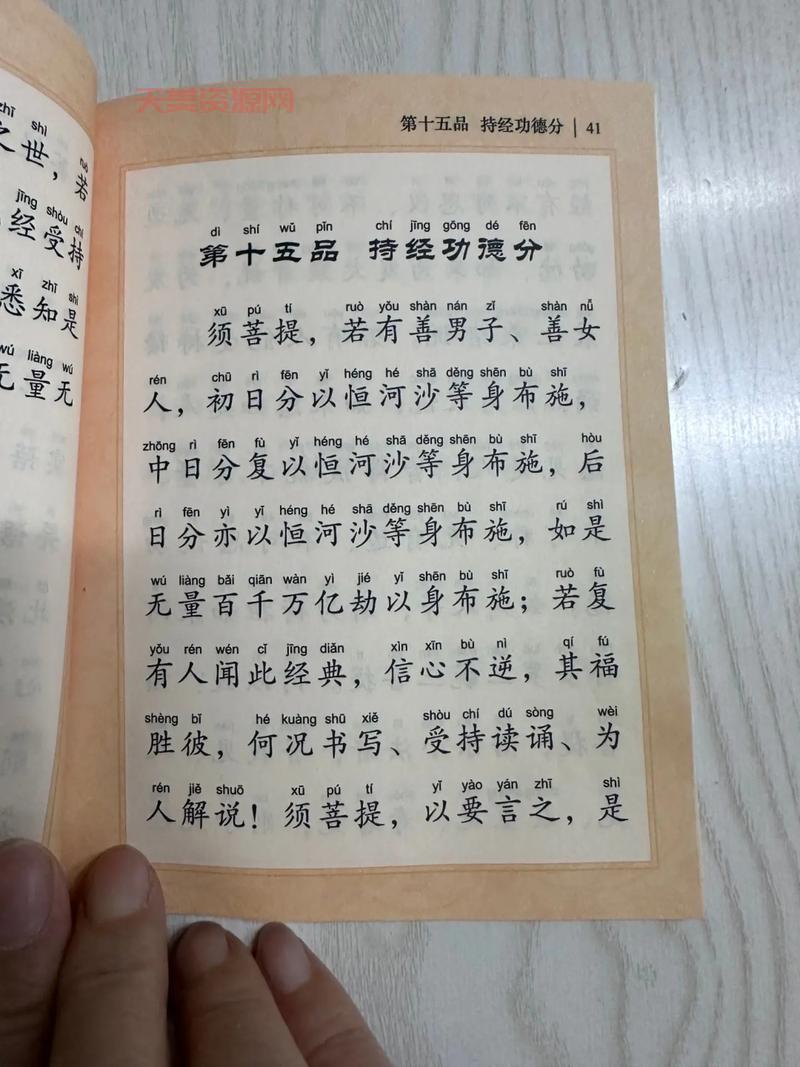 天美资源网
zhī shì
之世，若
jīng shòu chí
经受持
xī zhī shì
悉知是
wú liàng wú
无量无
第十五品 持经功德分 | 41
dì shí wǔ pǐn chí jīng gōng dé fēn
第十五品 持经功德分
xū pú tí ruò yǒu shàn nán zǐ shàn nǚ
须菩提，若有善男子、善女
rén chū rì fēn yǐ héng hé shā děng shēn bù shī
人，初日分以恒河沙等身布施，
zhōng rì fēn fù yǐ héng hé shā děng shēn bù shī hòu
中日分复以恒河沙等身布施，后
rì fēn yì yǐ héng hé shā děng shēn bù shī rú shì
日分亦以恒河沙等身布施，如是
wú liàng bǎi qiān wàn yì jié yǐ shēn bù shī ruò fù
无量百千万亿劫以身布施；若复
yǒu rén wén cǐ jīng diǎn xìn xīn bù nì qí fú
有人闻此经典，信心不逆，其福
shèng bǐ hé kuàng shū xiě shòu chí dú sòng wèi
胜彼，何况书写、受持读诵、为
rén jiě shuō xū pú tí yǐ yào yán zhī shì
人解说！须菩提，以要言之，是